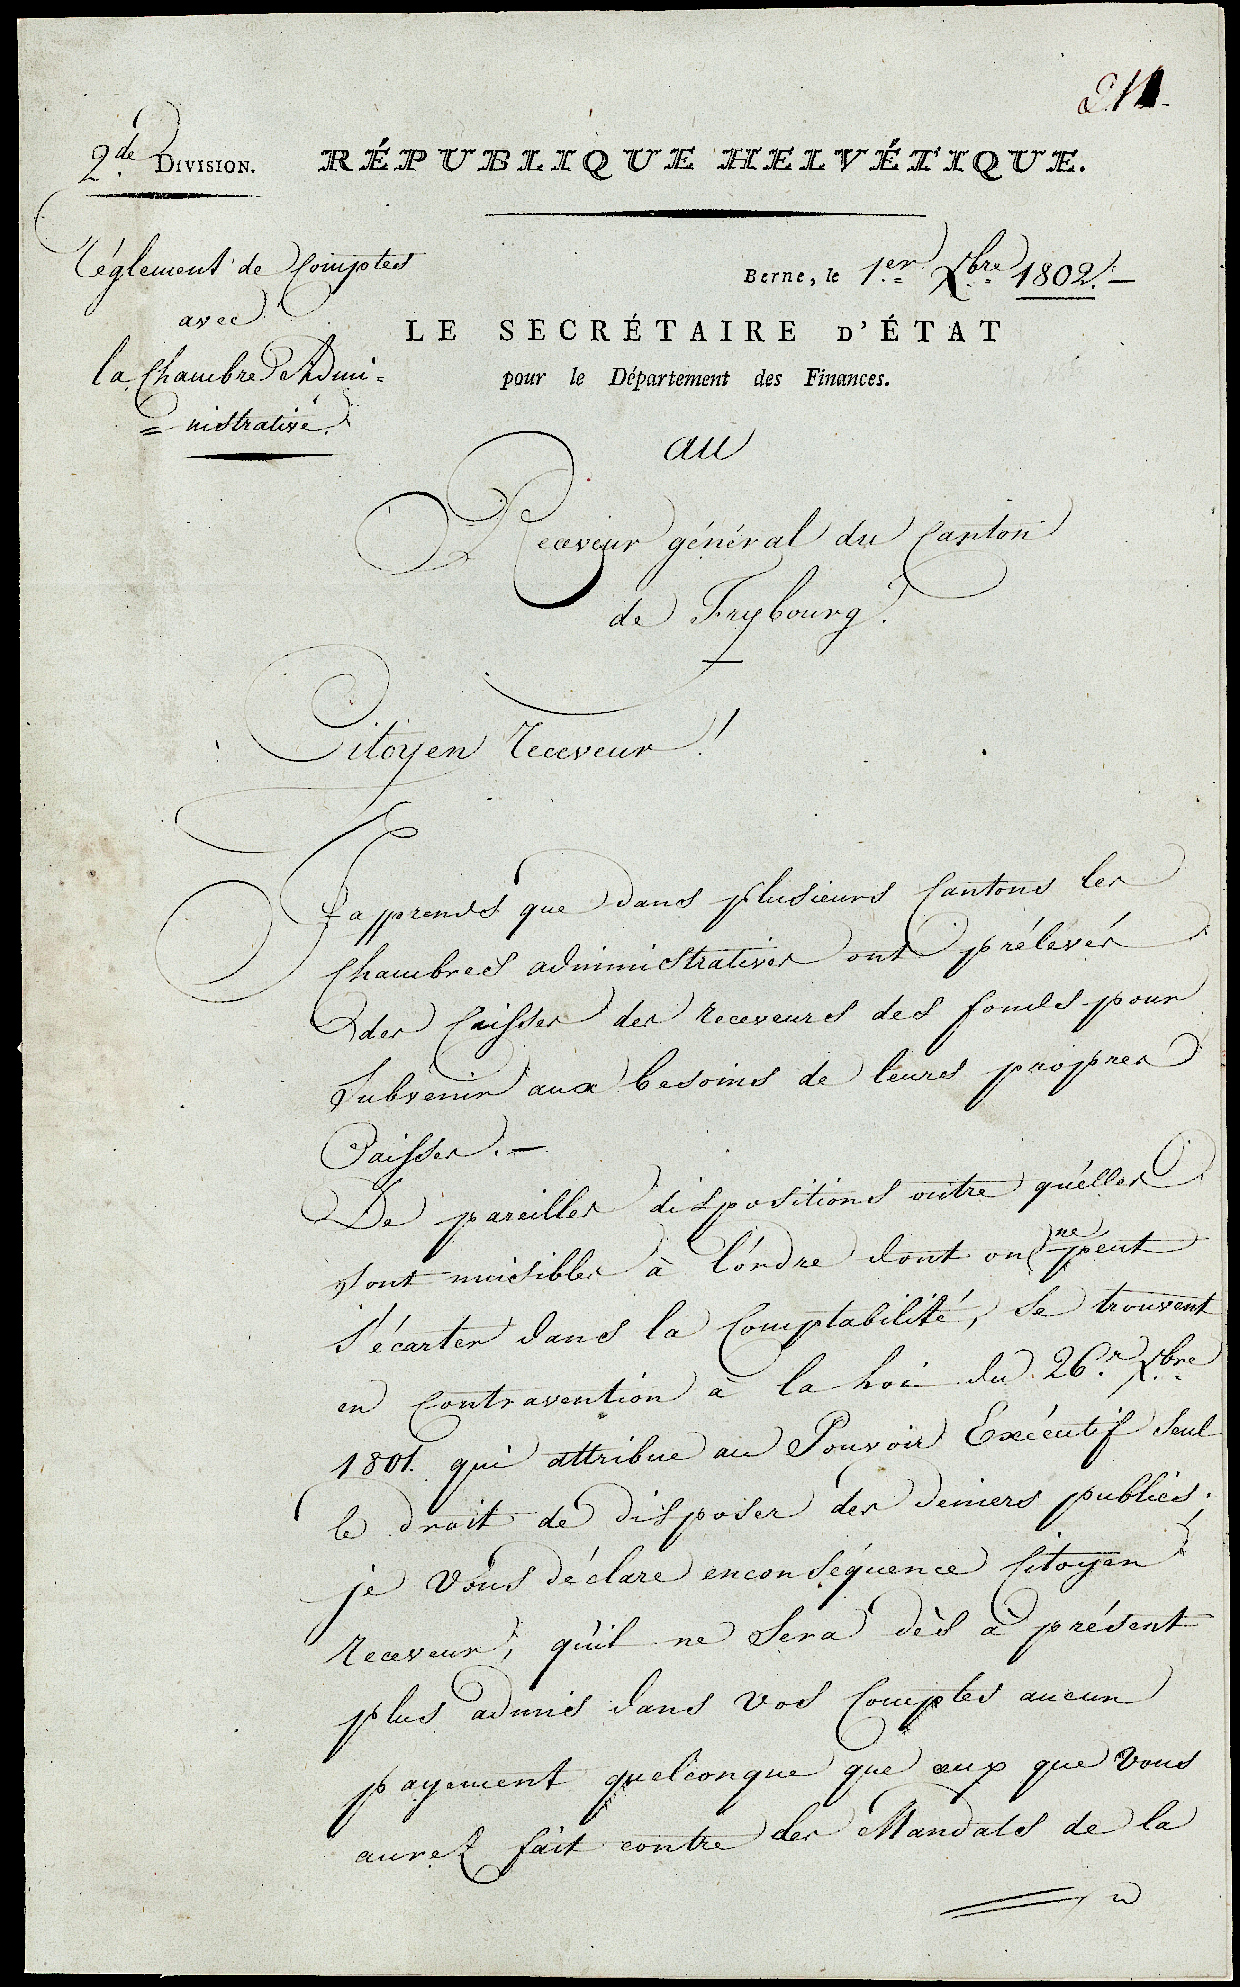 2.de DIVISION.
RÉPUBLIQUE HELVÉTIQUE.
Réglement de Comptes
avec
la Chambre Admi=
=nistrative.
Berne, le 1.er Xbre 1802.—
LE SECRÉTAIRE D'ÉTAT
pour le Département des Finances.
au
Receveur général du Canton
de Frybourg.
Citoyen Receveur!
J'apprends que dans plusieurs Cantons les
Chambres administratives ont prélevés
des Caisses des receveurs des fonds pour
Subvenir aux besoins de leurs propres
Caisses.—
De pareilles dispositions outre qu'elles
sont nuisibles à l'ordre dont on ne peut
s'écarter dans la Comptabilité, se trouvent
en Contravention à la Loi du 26.r Xbre
1801. qui attribue au Pouvoir Exécutif Seul
le droit de disposer des deniers publics;
je vous déclare enconséquence Citoyen
receveur, qu'il ne sera dès à présent
plus admis dans vos Comptes aucun
payement quelconque que ceux que vous
aurez fait contre des Mandats de la